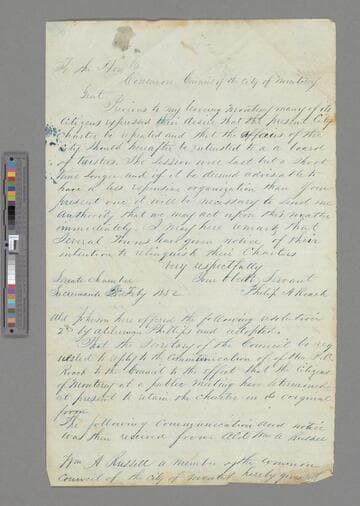 To the Hon
Common Council of the City of Monterey
Gent
Previous to my leaving Monterey many of its
Citizens expressed their desire that the present City
Charter be repealed and that the affairs of the
City should hereafter be submitted to a a board
of trustees. The Session will last but a short
time longer and if it be deemed advisable to
have a less expensive organization than your
present one it will be necessary to send me
authority that we may act upon this matter
immediately. I may here remark that
Several Towns have given notice of their
intention to relinquish their Charters
Very respectfully
Senate Chamber Your Obdt. Servant
Sacramento Feby 1852 Philip A Roach
Ald Johnson here offered the following resolution
2nd by alderman Phillips and adopted.
That the Secretary of the Council be req
uested to reply to the Communication of P. A.
Roach to the Council to the effect that the Citizens
of Monterey at a public meeting have determined
at present to retain the charter in its original
form
The following Communication and notice
was then received from Ald Wm A Russell
Wm A Russell a member of the common
Council of the City of hereby gives